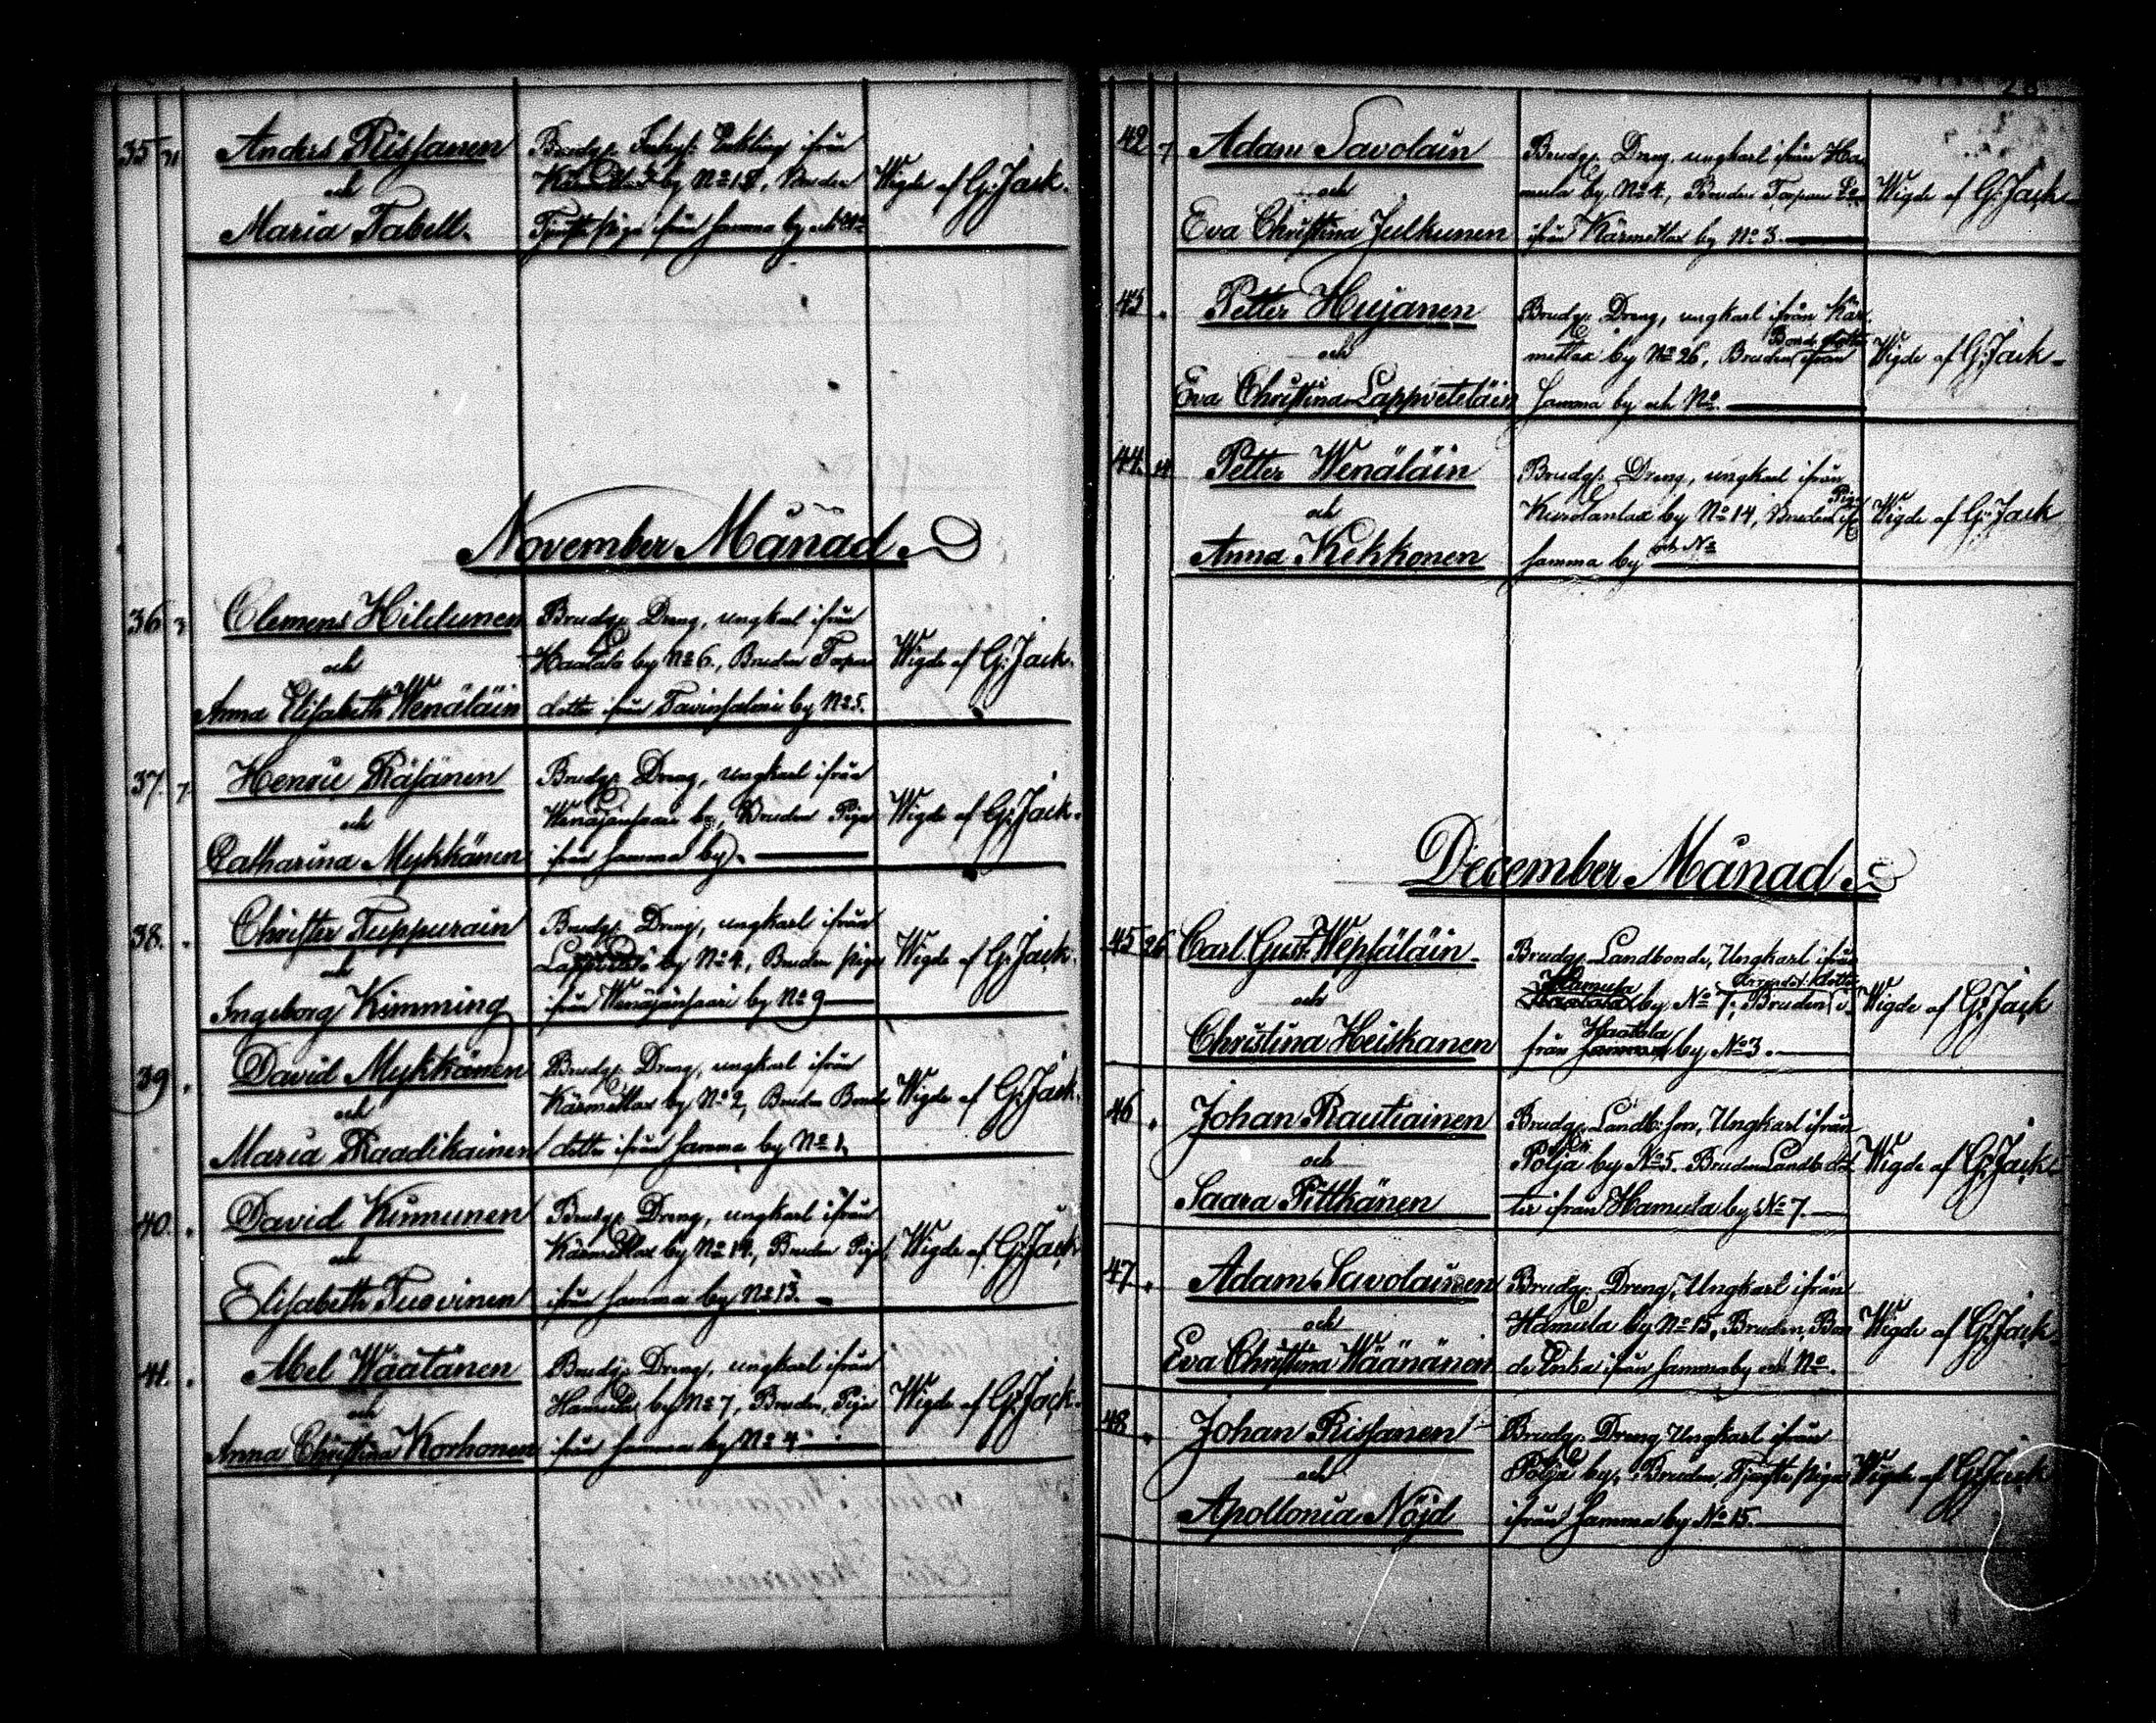 35 31 Anders Rissanen
och
Maria Tabell.
Brudg: Enkling ifrån
Kärmellax by No 18, Bruden
Tjenste piga ifrån samma by och No
Wigde af G: Jack.
November Månad.
36 3 Clemens Hildunen
och
Anna Elisabeth Wenäläin
Brudg: Dreng, ungkarl ifrån
Haatala by No 6., Bruden Torpare
dotter ifrån Tavinsalmi by No 5.
Wigde af G: Jack.
37. 7. Henric Räsänen
och
Catharina Mykkänen
Brudg: Dreng, ungkarl ifrån
Wenäjänsaari by, Bruden Piga
ifrån samma by.
Wigde af G: Jack.
38. . Christer Tuppurain
och
Ingeborg Kimming
Brudg: Dreng, ungkarl ifrån
by No 4., Bruden piga
ifrån Wenäjänsaari by No 9
Wigde af G: Jack.
39 . David Mykkänen
och
Maria Raadikainen
Brudg: Dreng, ungkarl ifrån
Kärmellax by No 2, Bruden Bonde
dotter ifrån samma by No 1.
Wigde af G: Jack.
40. . David Kinnunen
och
Elisabeth Tuovinen
Brudg: Dreng, ungkarl ifrån
Kärmellax by No 14., Bruden Piga
ifrån samma by No 13.
Wigde af G: Jack
41. . Abel Wäätänen
och
Anna Christina Korhonen
Brudg: Dreng, ungkarl ifrån
Hamula by No 7, Bruden, Piga
ifrån samma by No 4
Wigde af G: Jack.
42 7 Adam Savolain
och
Eva Christina Julkunen
Brudg: Dreng, ungkarl ifrån Ha
mula by No 4., Bruden Torpare
ifrån Kärmellax by No 3.
Wigde af G: Jack
43 . Petter Hujanen
och
Eva Christina Lappveteläin
Brudg: Dreng, ungkarl ifrån Kär
mellax by No 26, Bruden Bonde dotter ifrån
samma by och No.
Wigde af G: Jack
44. Petter Wenäläin
och
Anna Kekkonen
Brudg: Dreng, ungkarl ifrån
Kurolanlax by No 14, Bruden Piga ifr
samma by och No
Wigde af G: Jack
December Månad.
45 26 Carl Gust: Wepsäläin.
och
Christina Heiskanen
Brudg: Landbonde, Ungkarl ifrån
Hamula by No 7; Bruden Arrendat: dotter i
från Haatala by No 3.
Wigde af G: Jack
46 . Johan Rautiainen
och
Saara Pittkänen
Brudg: Landb: son, Ungkarl ifrån
Pöljä by No 5. Bruden Landb: dot
ter ifrån Hamula by No 7.
Wigde af G: Jack
47 . Adam Savolainen
och
Eva Christina Wäänänen
Brudg: Dreng, Ungkarl ifrån
Hamula by No 15, Bruden, Bon
de Enka ifrån samma by och No.
Wigde af G: Jack.
48 . Johan Rissanen
och
Apollonia Nöjd
Brudg: Dreng Ungkarl ifrån
Pöljä by, Bruden, Tjenste piga
ifrån samma by No 15.
Wigde af G: Jack